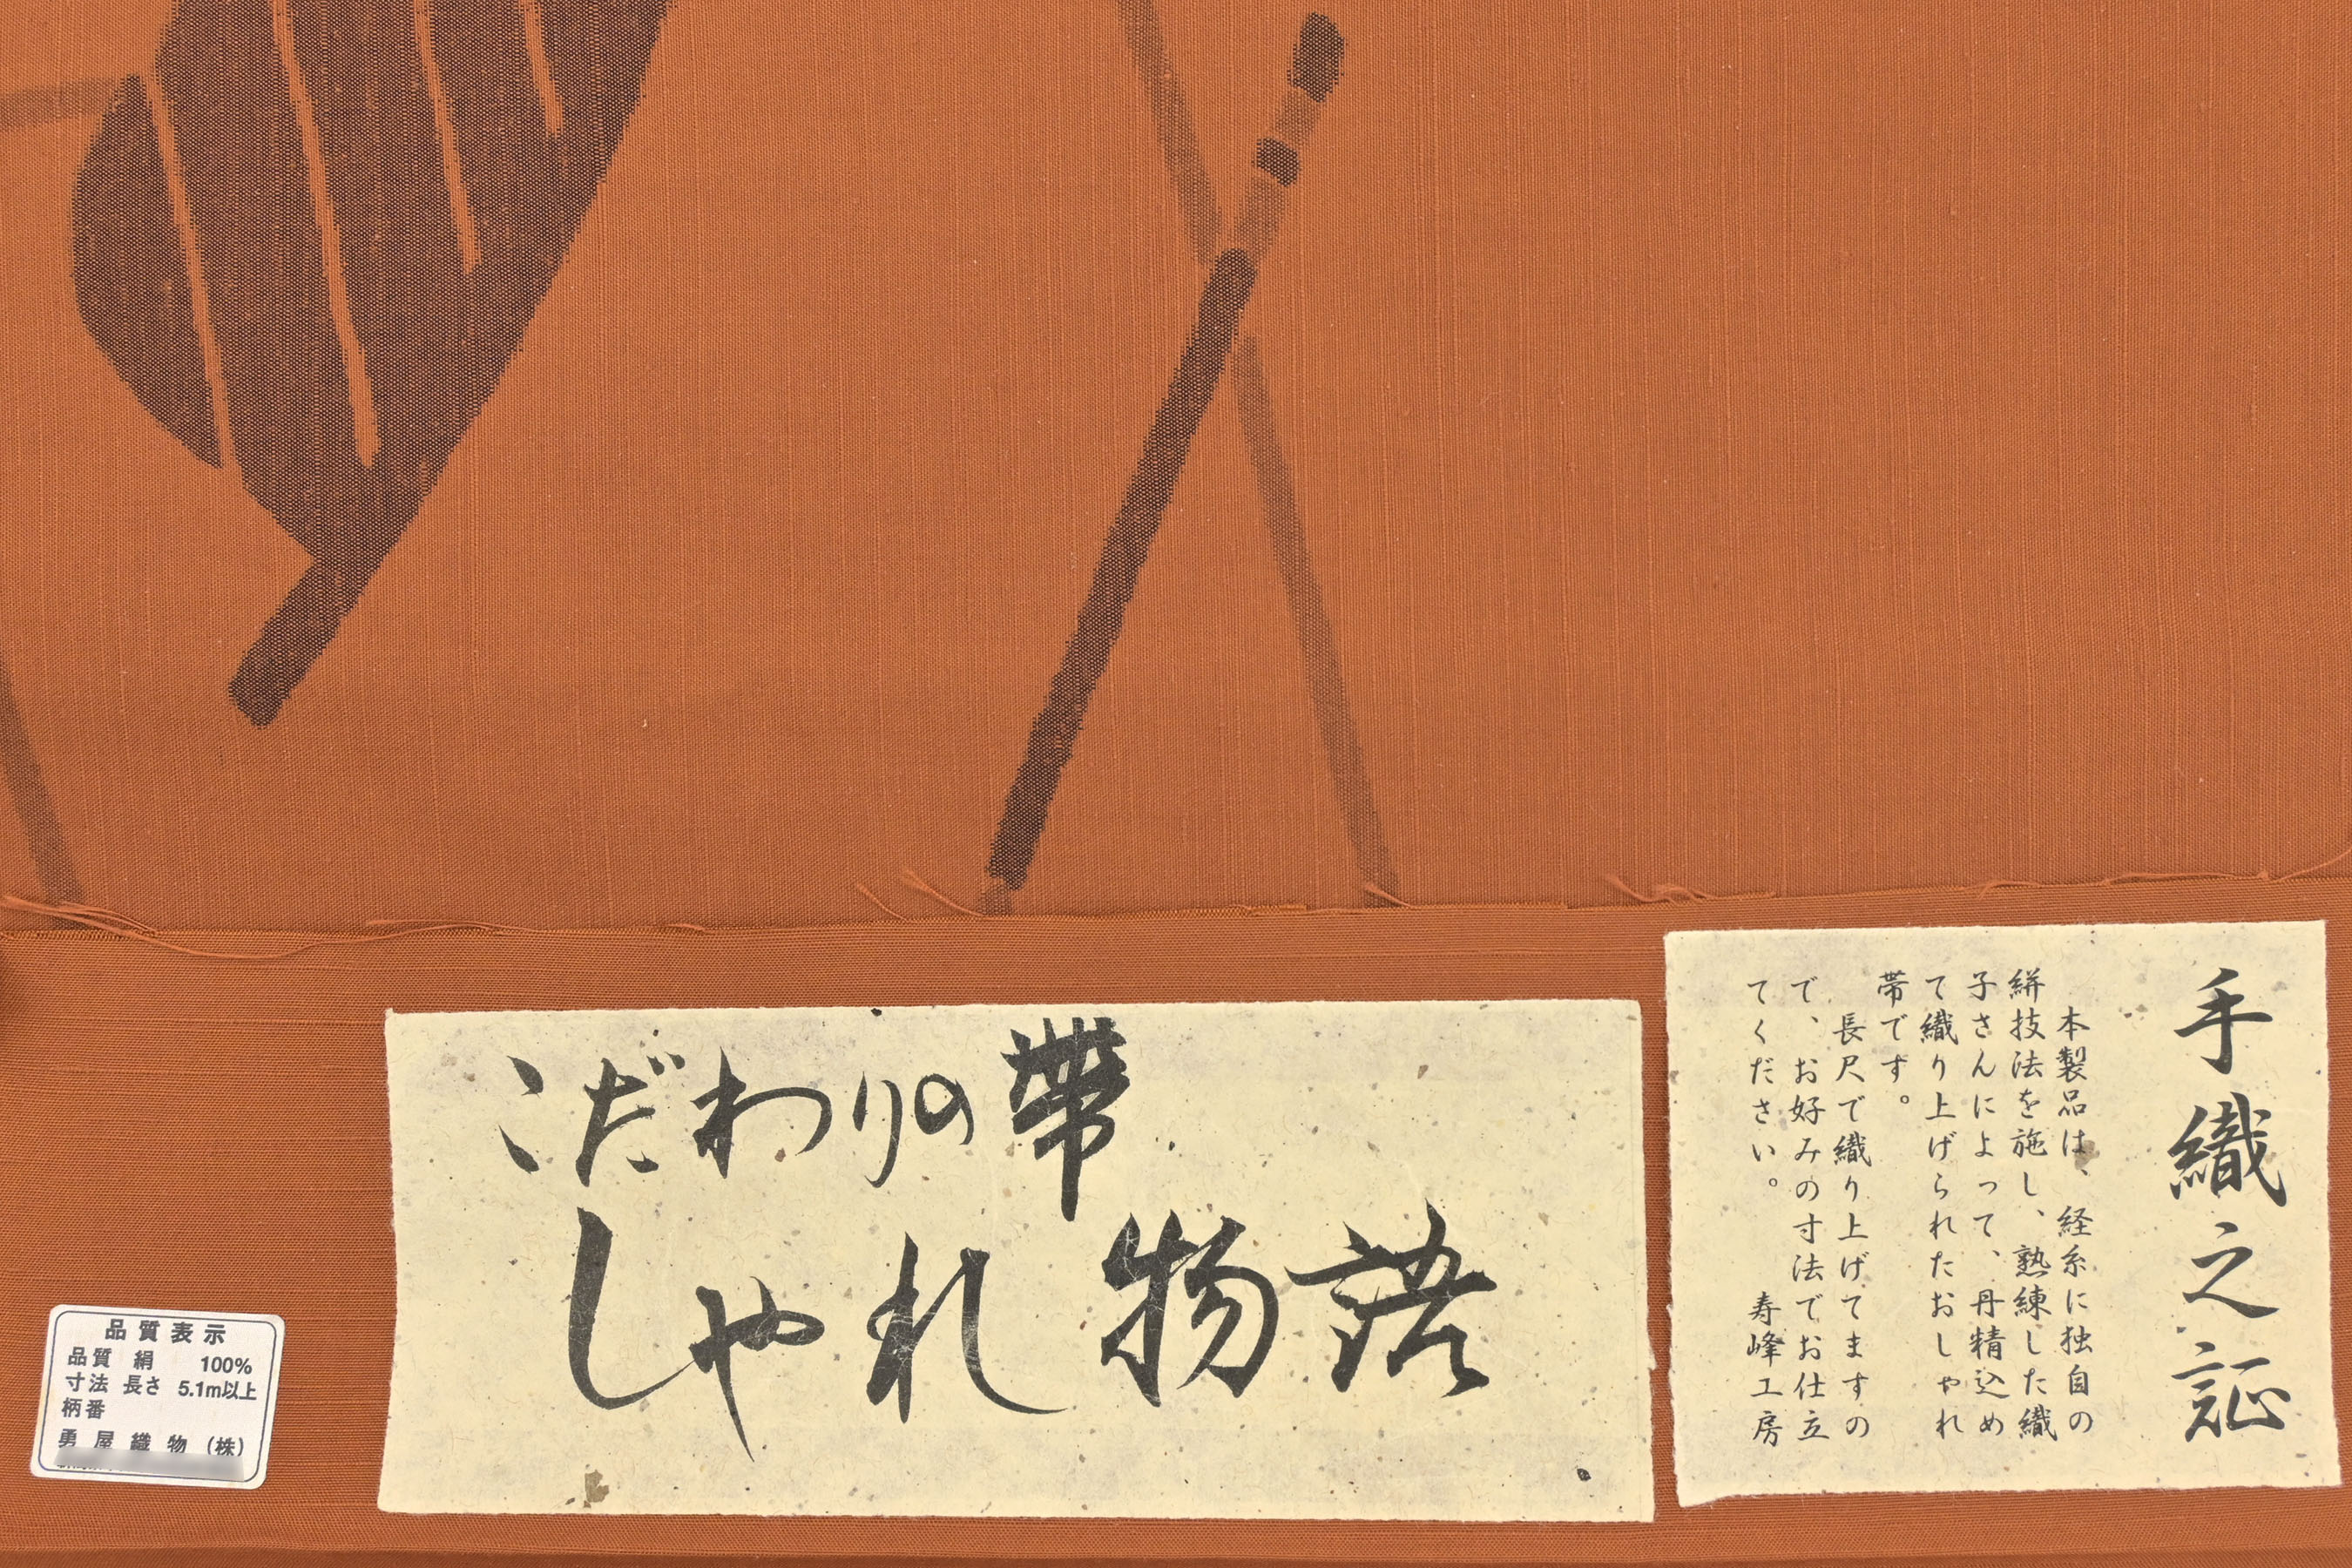 手織之証
本製品は、経糸に独自の
絣技法を施し、熟練した織
子さんによって、丹精込め
て織り上げられたおしゃれ
帯です。
長尺で織り上げてますの
で、お好みの寸法でお仕立
てください。 寿峰工房
こだわりの帯
しゃれ物語
品質表示
品質 絹 100%
寸法 長さ 5.1m以上
柄番
勇屋織物(株)